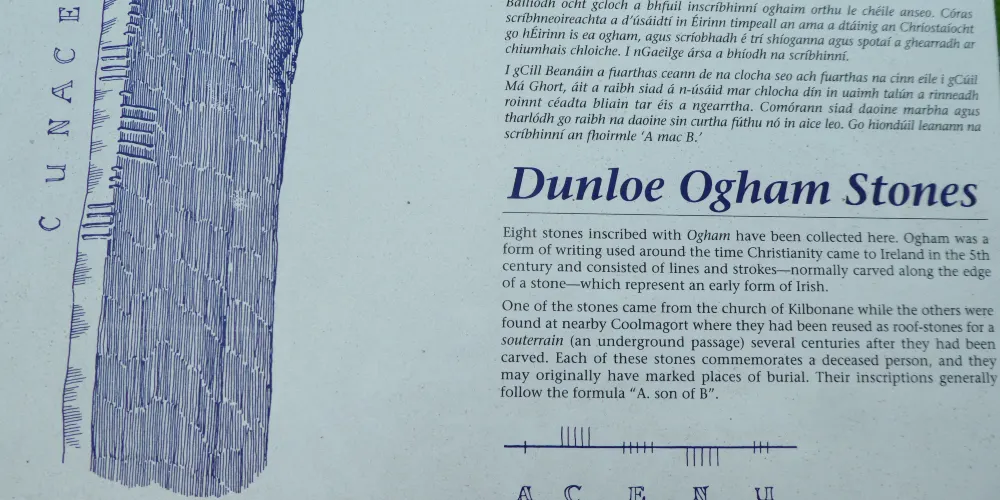 CUNACE
Bailíodh ocht gcloch a bhfuil inscríbhinní oghaim orthu le chéile anseo. Córas
scríbhneoireachta a d'úsáidtí in Éirinn timpeall an ama a dtáinig an Chríostaíocht
go hÉirinn is ea ogham, agus scríobhadh é trí shíoganna agus spotaí a ghearradh ar
chiumhais chloiche. I nGaeilge ársa a bhíodh na scríbhinní.
I gCill Beanáin a fuarthas ceann de na clocha seo ach fuarthas na cinn eile i gCúil
Má Ghort, áit a raibh siad á n-úsáid mar chlocha dín in uaimh talún a rinneadh
roinnt céadta bliain tar éis a ngearrtha. Comórann siad daoine marbha agus
tharlódh go raibh na daoine sin curtha fúthu nó in aice leo. Go hiondúil leanann na
scríbhinní an fhoirmle 'A mac B.'
Dunloe Ogham Stones
Eight stones inscribed with Ogham have been collected here. Ogham was a
form of writing used around the time Christianity came to Ireland in the 5th
century and consisted of lines and strokes—normally carved along the edge
of a stone—which represent an early form of Irish.
One of the stones came from the church of Kilbonane while the others were
found at nearby Coolmagort where they had been reused as roof-stones for a
souterrain (an underground passage) several centuries after they had been
carved. Each of these stones commemorates a deceased person, and they
may originally have marked places of burial. Their inscriptions generally
follow the formula "A. son of B".
A C E N U